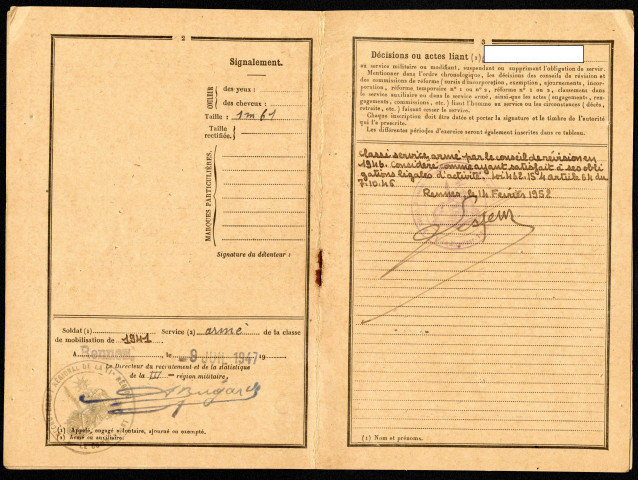 2
Signalement.
COULEUR
des yeux :
des cheveux :
Taille : 1m61
Taille rectifiée.
MARQUES PARTICULIÈRES.
Signature du détenteur :
Soldat (1) Service (2) armé de la classe
de mobilisation de 1941
A Rennes, le -9 JUIL 1947 19
Le Directeur du recrutement et de la statistique
de la III région militaire,
(1) Appelé, engagé volontaire, ajourné ou exempté.
(2) Armé ou auxiliaire.
3
Décisions ou actes liant (1)
au service militaire ou modifiant, suspendant ou supprimant l'obligation de servir.
Mentionner dans l'ordre chronologique, les décisions des conseils de révision et
des commissions de réforme (sursis d'incorporation, exemption, ajournements, incor-
poration, réforme temporaire n° 1 ou n° 2, réforme n° 1 ou 2, classement dans
le service auxiliaire ou dans le service armé, ainsi que les actes (engagements, ren-
gagements, commissions, etc.) liant l'homme au service ou les circonstances (décès,
retraite, etc.) faisant cesser le service.
Chaque inscription doit être datée et porter la signature et le timbre de l'autorité
qui l'a prescrite.
Les différentes périodes d'exercice seront également inscrites dans ce tableau.
Classé service armé par le conseil de révision en
1946. Considéré comme ayant satisfait à ses obli
gations légales d'activité. Loi 462.154 article 64 du
7.10.46
Rennes, le 14 Février 1952
(1) Nom et prénoms.